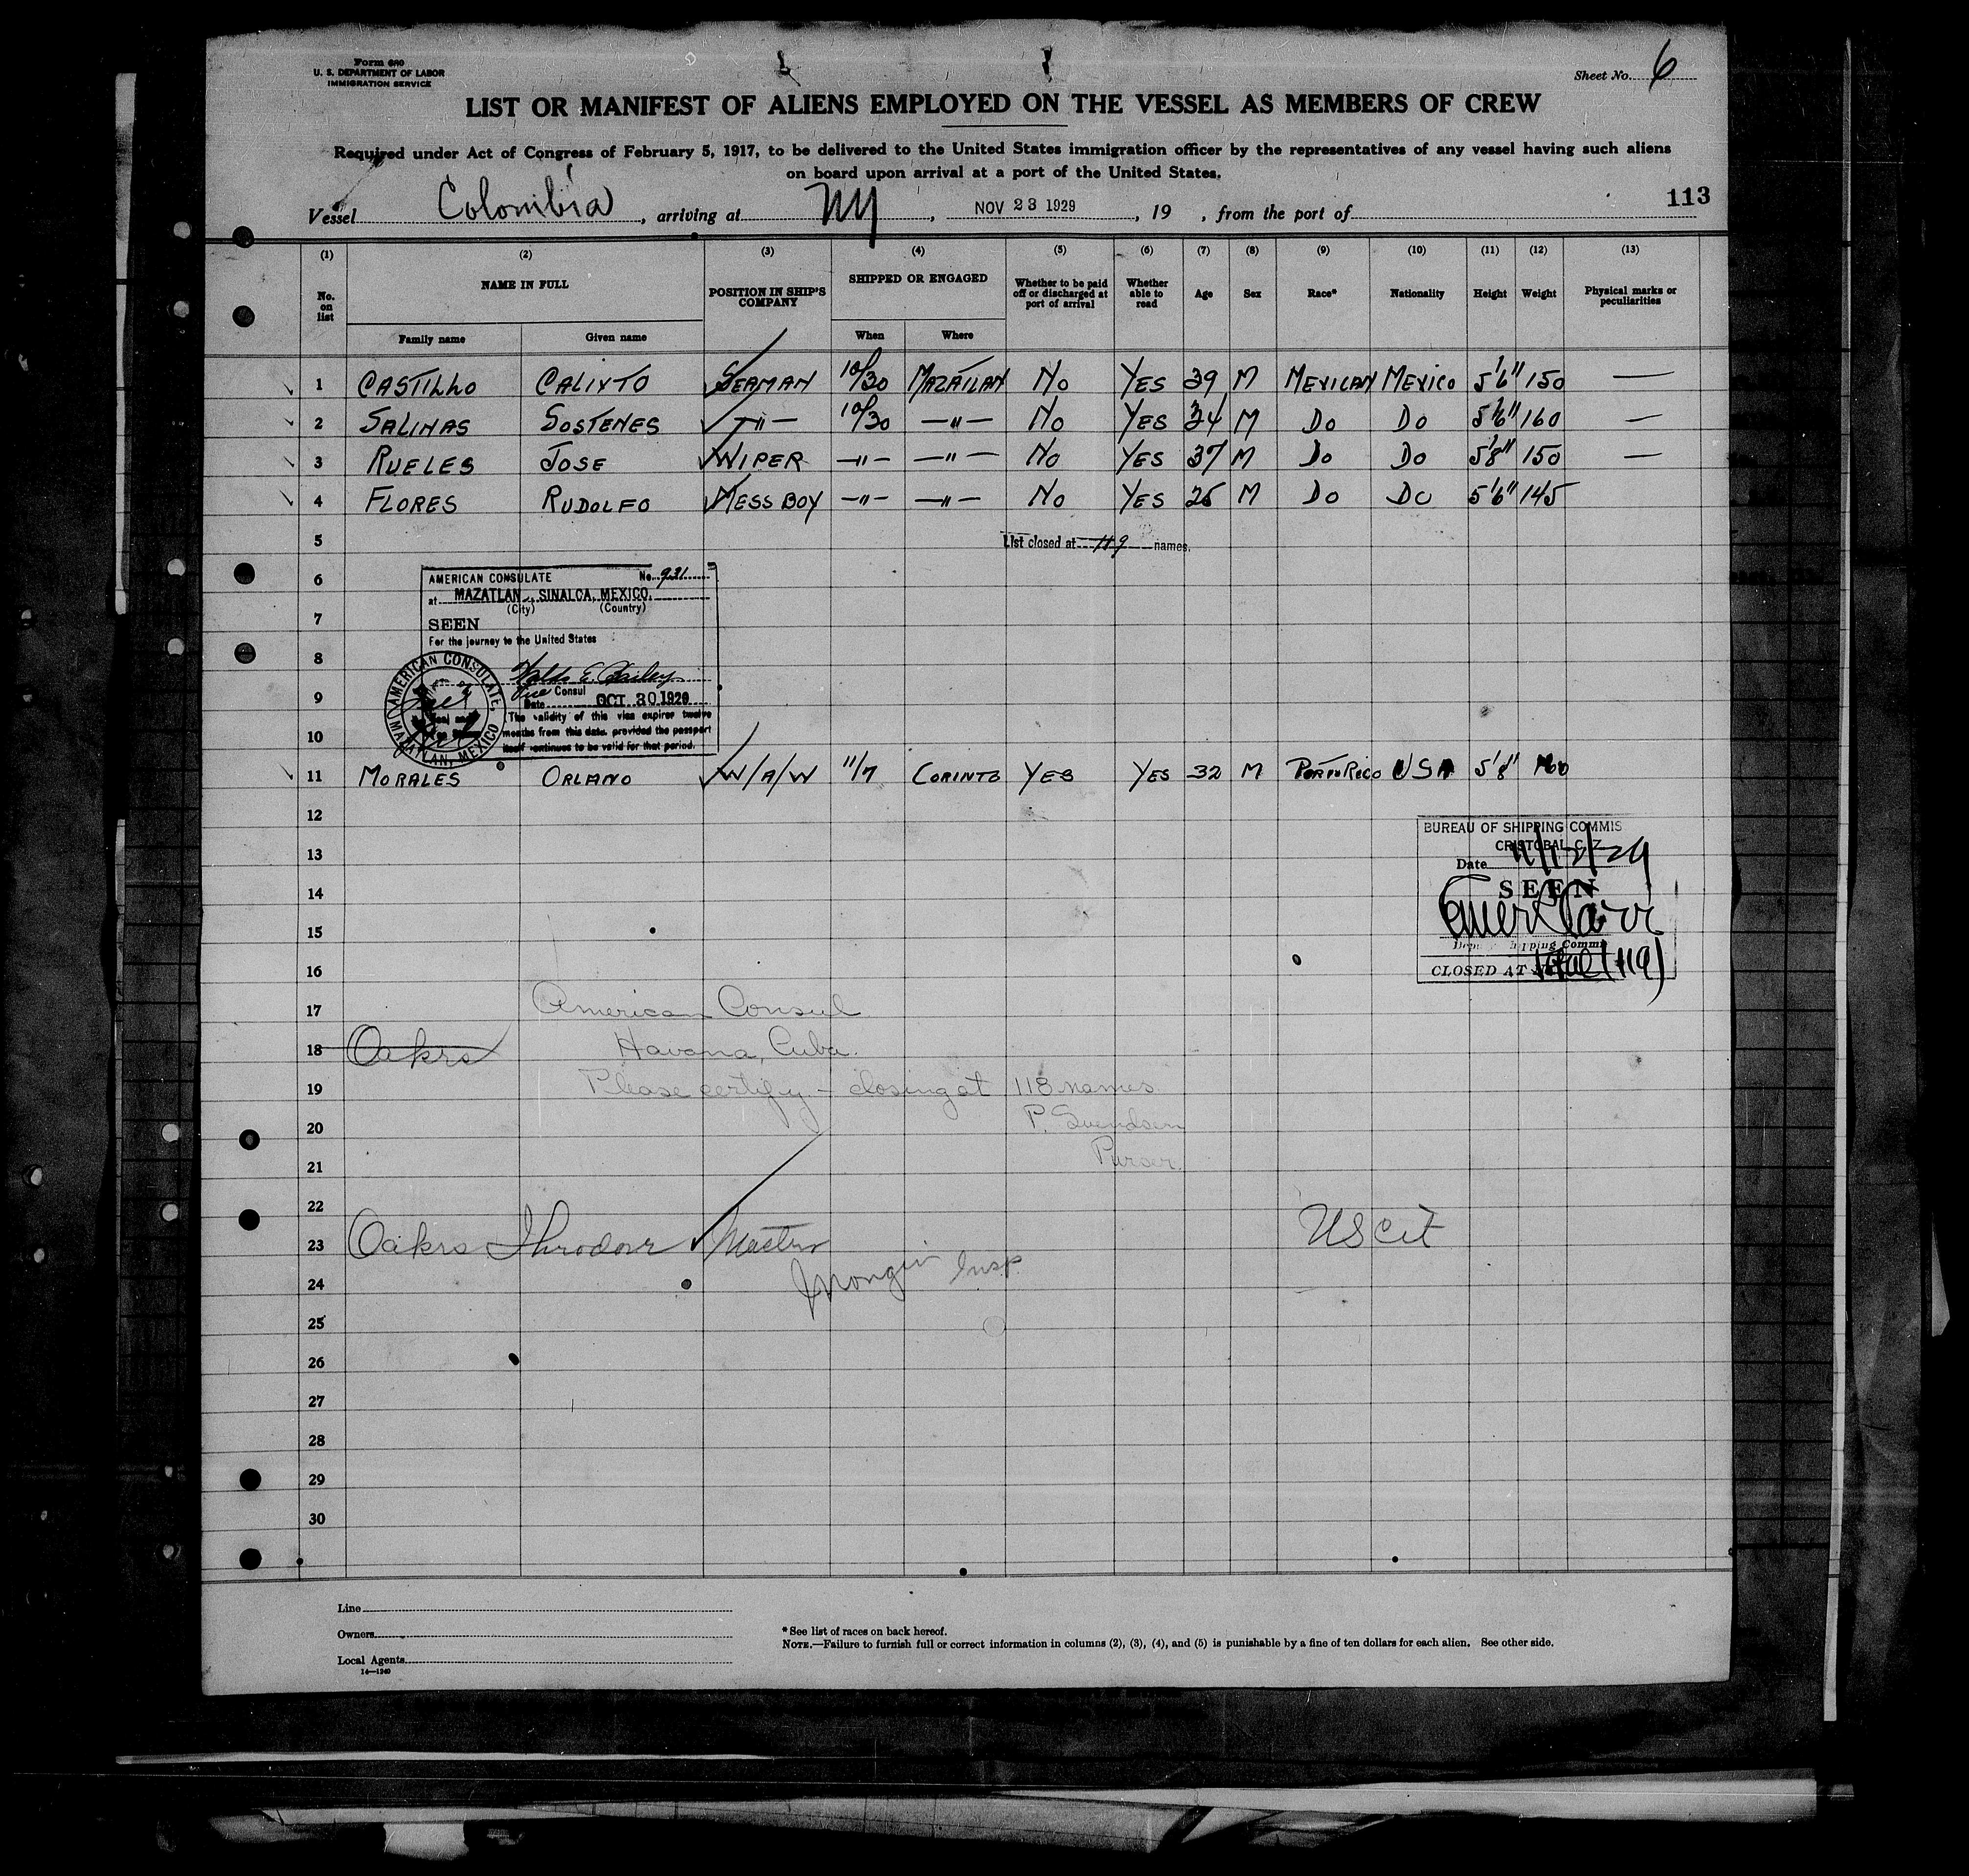 Form 680
U. S. DEPARTMENT OF LABOR
IMMIGRATION SERVICE
Sheet No. 6
LIST OR MANIFEST OF ALIENS EMPLOYED ON THE VESSEL AS MEMBERS OF CREW
Required under Act of Congress of February 5, 1917, to be delivered to the United States immigration officer by the representatives of any vessel having such aliens
on board upon arrival at a port of the United States.
113
Vessel Colombia, arriving at NY, NOV 23 1929, 19 , from the port of
(1) (2) (3) (4) (5) (6) (7) (8) (9) (10) (11) (12) (13)
No. on list NAME IN FULL POSITION IN SHIP'S COMPANY SHIPPED OR ENGAGED Whether to be paid off or discharged at port of arrival Whether able to read Age Sex Race* Nationality Height Weight Physical marks or peculiarities
Family name Given name When Where
1 CASTILLO CALIXTO SEAMAN 10/30 MAZATLAN NO YES 39 M MEXICAN MEXICO 5'6" 150 —
2 SALINAS SOSTENES —"— 10/30 —"— NO YES 24 M DO DO 5'6" 160 —
3 RUELES JOSE WIPER —"— —"— NO YES 37 M DO DO 5'8" 150 —
4 FLORES RUDOLFO MESS BOY —"— —"— NO YES 25 M DO DO 5'6" 145
5 List closed at 119 names.
6 AMERICAN CONSULATE No. 931
at MAZATLAN, SINALOA, MEXICO.
(City) (Country)
7 SEEN
For the journey to the United States
8
AMERICAN CONSULATE, MAZATLAN, MEXICO
9 Vice Consul
Date OCT 30 1929
The validity of this visa expires twelve
10 months from this date, provided the passport
itself continues to be valid for that period.
11 MORALES ORLANO W/A/W 11/7 CORINTO YES YES 32 M PORTO RICO USA 5'8"
12
BUREAU OF SHIPPING COMMIS
CRISTOBAL C. Z.
13 Date 11/12/29
14 SEEN
15
Shipping Commi
16 CLOSED AT (119)
17 American Consul
18 Oakes Havana, Cuba.
19 Please certify - closing at 118 names
20 P. Svendsen
21 Purser.
22
23 Oakes Theodore Master US Cit
Insp.
24
25
26
27
28
29
30
Line
Owners
Local Agents
14—1940
*See list of races on back hereof.
NOTE.—Failure to furnish full or correct information in columns (2), (3), (4), and (5) is punishable by a fine of ten dollars for each alien. See other side.